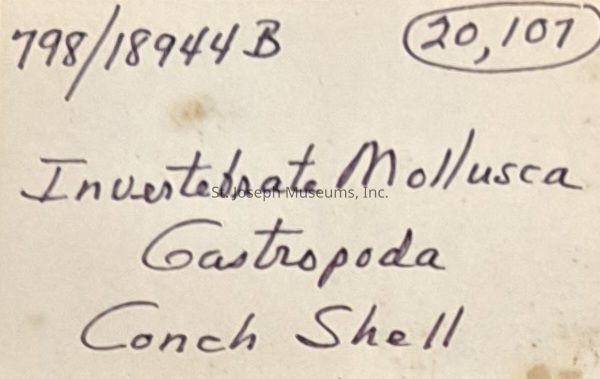 798/18944B 20,107
Invertebrate Mollusca
St. Joseph Museums, Inc.
Gastropoda
Conch Shell